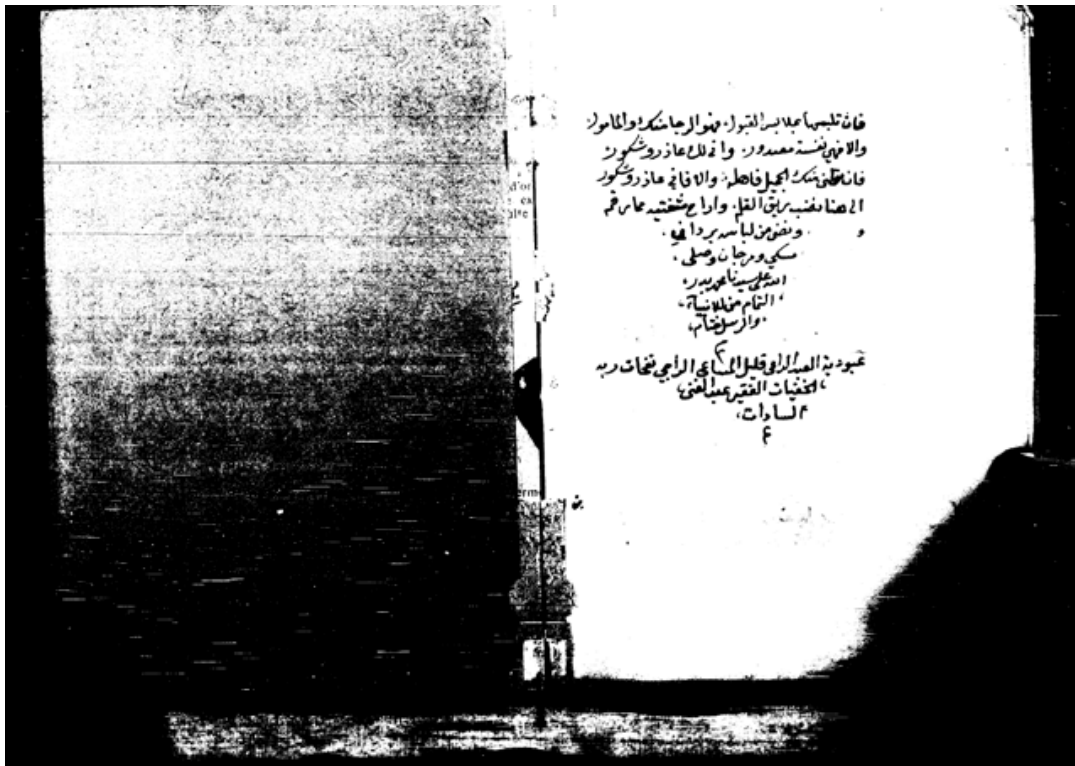 فان تلبسها بملابس القبول، فهو الرجا منك والمامول
والا فهي نفسة مصدور، واني لك عاذر وشكور
فانه ظني منك الجميل فاهله والا فاني عاذر وشكور
الى هنا نضب ريق القلم، واراح شفتيه مما رقم
و ونضى من لباس برداني
مسكي ومرجان وصلى
الله على سيدنا محمد بدر
التمام من للانبياء
والرسل ختام
م
عبودية العبد الداعي قليل المساعي الراجي نفحات ربه
الخفيات الفقير عبد الغني
السادات